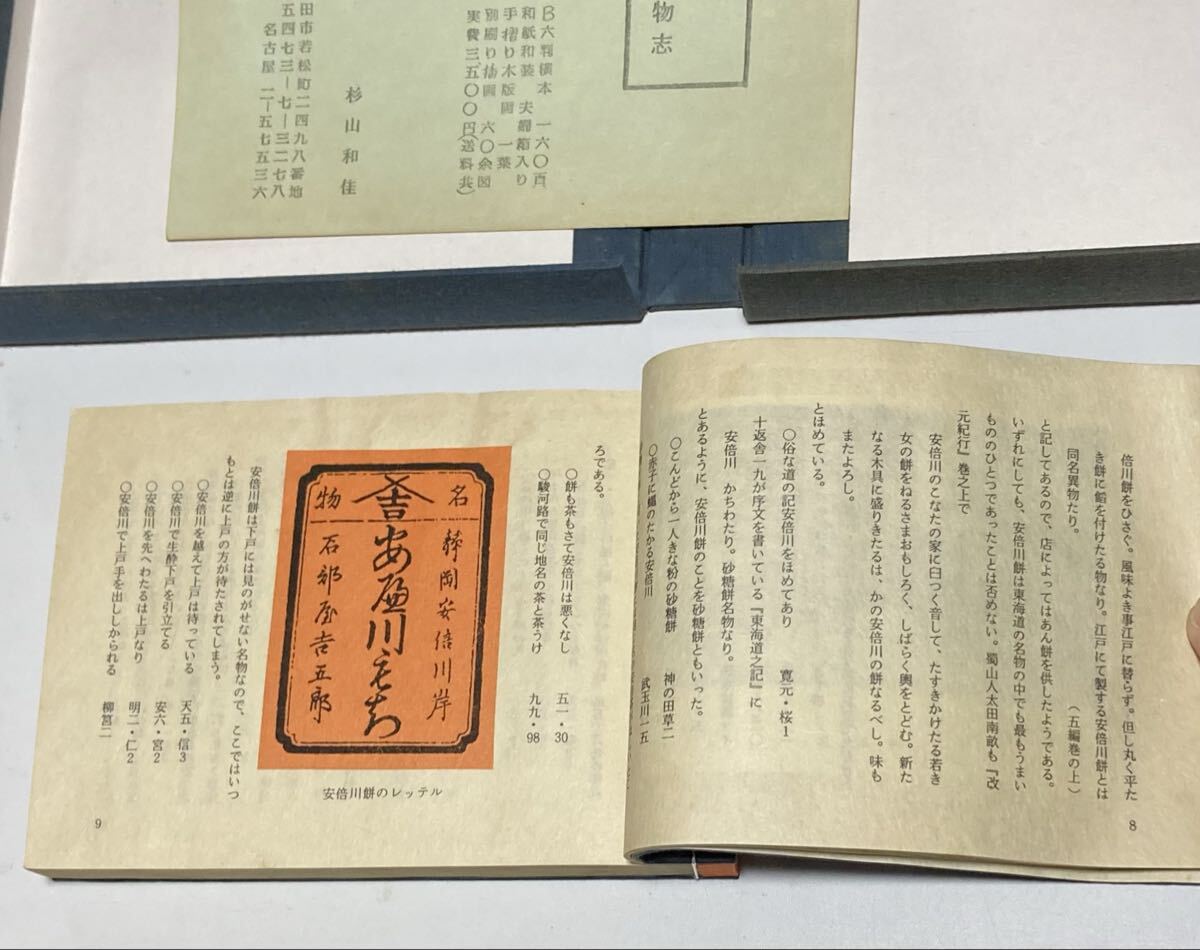 物志
B六判横本 一六〇頁
和紙和装 夫婦箱入り
手摺り木版画 一葉
別刷り挿画 六〇余図
実費三五〇〇円(送料共)
杉山和佳
田市若松町二四九八番地
五四七三―七―三二七八
名古屋 二―五七五三六
倍川餅をひさぐ。風味よき事江戸に替らず。但し丸く平た
き餅に餡を付けたる物なり。江戸にて製する安倍川餅とは
同名異物たり。 (五編巻の上)
と記してあるので、店によってはあん餅を供したようである。
いずれにしても、安倍川餅は東海道の名物の中でも最もうまい
もののひとつであったことは否めない。蜀山人太田南畝も『改
元紀行』巻之上で
安倍川のこなたの家に臼つく音して、たすきかけたる若き
女の餅をねるさまおもしろく、しばらく輿をとどむ。新た
なる木具に盛りきたるは、かの安倍川の餅なるべし。味も
またよろし。
とほめている。
〇俗な道の記安倍川をほめてあり 寛元・桜1
十返舎一九が序文を書いている『東海道之記』に
安倍川 かちわたり。砂糖餅名物なり。
とあるように、安倍川餅のことを砂糖餅ともいった。
〇こんどから一人きな粉の砂糖餅 神の田草二
〇赤子に蝿のたかる安倍川 武玉川一五
8
ろである。
〇餅も茶もさて安倍川は悪くなし 五一・30
〇駿河路で同じ地名の茶と茶うけ 九九・98
名物
静岡安倍川岸
吉
安倍川もち
石部屋吉五郎
安倍川餅のレッテル
安倍川餅は下戸には見のがせない名物なので、ここではいつ
もとは逆に上戸の方が待たされてしまう。
〇安倍川を越えて上戸は待っている 天五・信3
〇安倍川で生酔下戸を引立てる 安六・宮2
〇安倍川を先へわたるは上戸なり 明二・仁2
〇安倍川で上戸手を出ししかられる 柳筥二
9